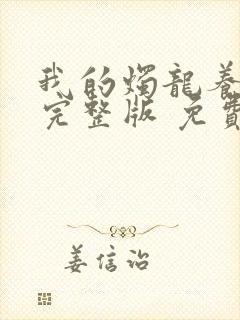 我的燭龍養
完整版 免費
姜信治